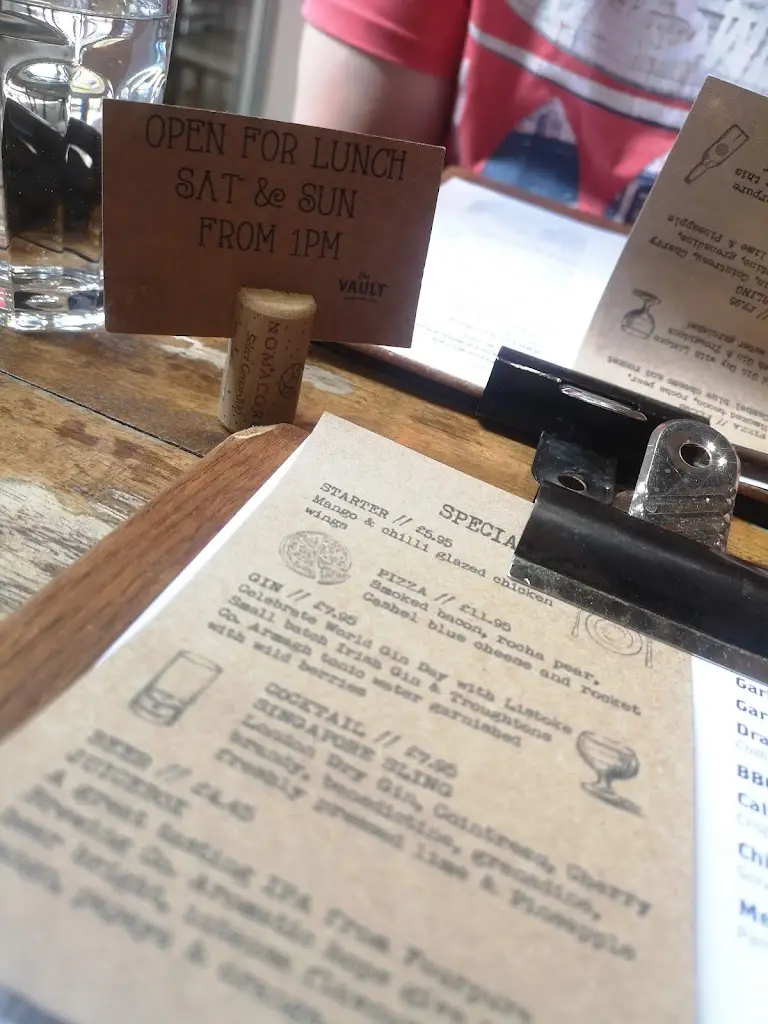 OPEN FOR LUNCH
SAT & SUN
FROM 1PM
The
VAULT
NOMACOR
SPECIA
STARTER // £5.95
Mango & chilli glazed chicken
wings
PIZZA // £11.95
Smoked bacon, rocha pear,
Cashel blue cheese and rocket
GIN // £7.95
Celebrate World Gin Day with Listoke
Small batch Irish Gin & Troughtons
Co. Armagh tonic water garnished
with wild berries
COCKTAIL // £7.95
SINGAPORE SLING
London Dry Gin, Cointreau, Cherry
Brandy, benedictine, grenadine,
freshly pressed lime & Pineapple
BEER // £4.45
JUICEBOX
A great tasting IPA from Fourpure
Brewing Co. Aromatic hops give
beer bright, intense flavour
papaya &
Gar
Gar
Dra
BB
Cal
Chi
Me